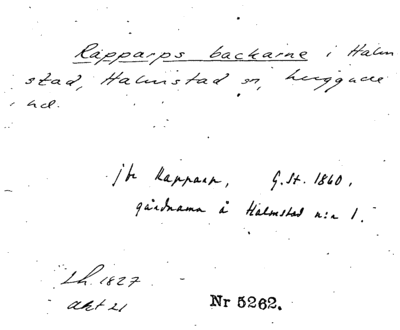 Rapparps backarne i Halm
stad, Halmstad sn, huggude
i ud.
jfr Rapparp, G.St. 1860,
gårdnamn å Halmstad n:r 1.
Lh. 1827
akt 21
Nr 5262.